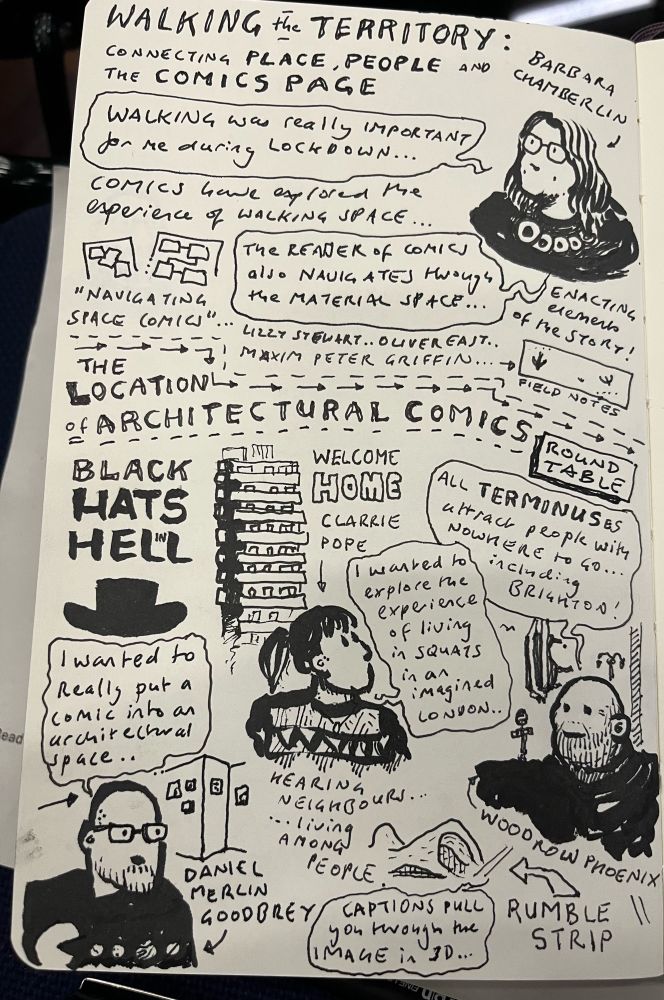 WALKING the TERRITORY:
CONNECTING PLACE, PEOPLE AND
THE COMICS PAGE
BARBARA
CHAMBERLIN
WALKING was really IMPORTANT
for me during LOCKDOWN...
COMICS have explored the
experience of WALKING SPACE...
"NAVIGATING
SPACE COMICS"...
The READER of COMICS
also NAVIGATES through
the MATERIAL SPACE...
ENACTING
elements
of the STORY!
LIZZY STEWART.. OLIVER EAST..
MAXIM PETER GRIFFIN...
FIELD NOTES
THE
LOCATION
of ARCHITECTURAL COMICS
ROUND
TABLE
BLACK
HATS
IN
HELL
WELCOME
HOME
CLARRIE
POPE
ALL TERMINUSES
attract people with
NOWHERE to GO...
including
BRIGHTON!
I wanted to
explore the
experience
of living
in SQUATS
in an
imagined
LONDON..
I wanted to
Really put a
comic into an
architectural
space..
HEARING
NEIGHBOURS...
...living
AMONG
PEOPLE.
WOODROW PHOENIX
DANIEL
MERLIN
GOODBREY
CAPTIONS PULL
you through the
IMAGE in 3D...
RUMBLE
STRIP